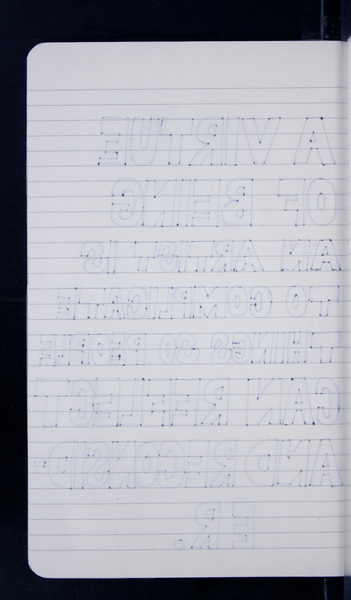 A VIRTUE
OF BEING
AN ARTIST IS
TO COMPLICATE
THINGS SO PEOPLE
CAN REFLECT
AND RECONSID-
ER.